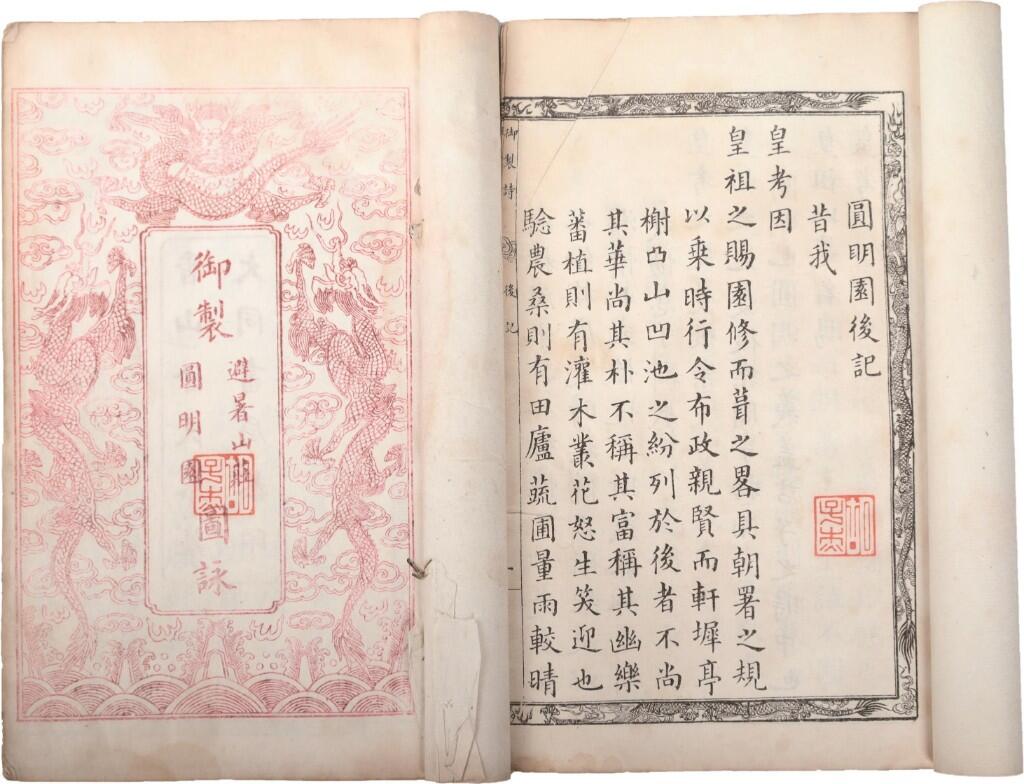 御製
避暑山莊
圓明園
圖詠
圓明園後記
昔我
皇考因
皇祖之賜園修而葺之畧具朝署之規
以乗時行令布政親賢而軒墀亭
榭凸山凹池之紛列於後者不尚
其華尚其朴不稱其富稱其幽樂
蕃植則有灌木叢花怒生笑迎也
騐農桑則有田廬蔬圃量雨較晴
御製詩 後記 一